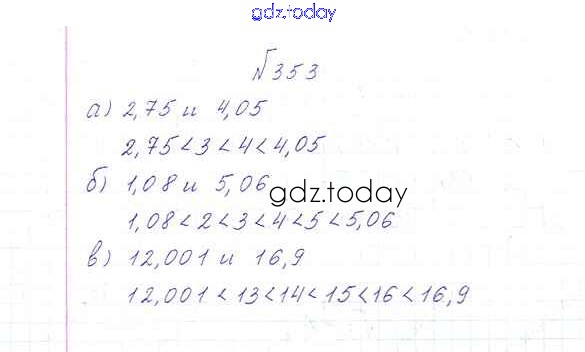 gdz.today
№353
а) 2,75 и 4,05
2,75<3<4<4,05
б) 1,08 и 5,06
gdz.today
1,08<2<3<4<5<5,06
в) 12,001 и 16,9
12,001<13<14<15<16<16,9